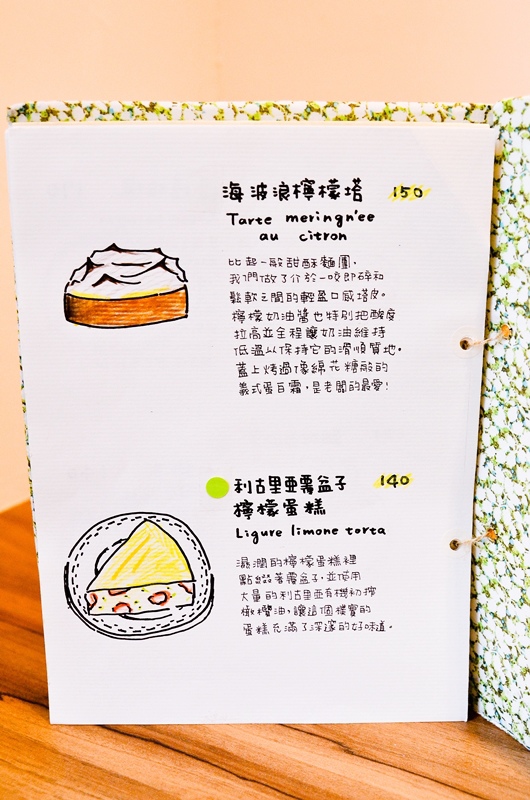 海波浪檸檬塔 150
Tarte meringn'ee
au citron
比起一般甜酥麵團,
我們做了介於一咬即碎和
鬆軟之間的輕盈口感塔皮。
檸檬奶油醬也特別把酸度
拉高並全程讓奶油維持
低溫以保持它的滑順質地。
蓋上烤過像綿花糖般的
義式蛋白霜,是老闆的最愛!
利古里亞覆盆子 140
檸檬蛋糕
Ligure limone torta
濕潤的檸檬蛋糕裡
點綴著覆盆子,並使用
大量的利古里亞有機初榨
橄欖油,讓這個樸實的
蛋糕充滿了深邃的好味道。